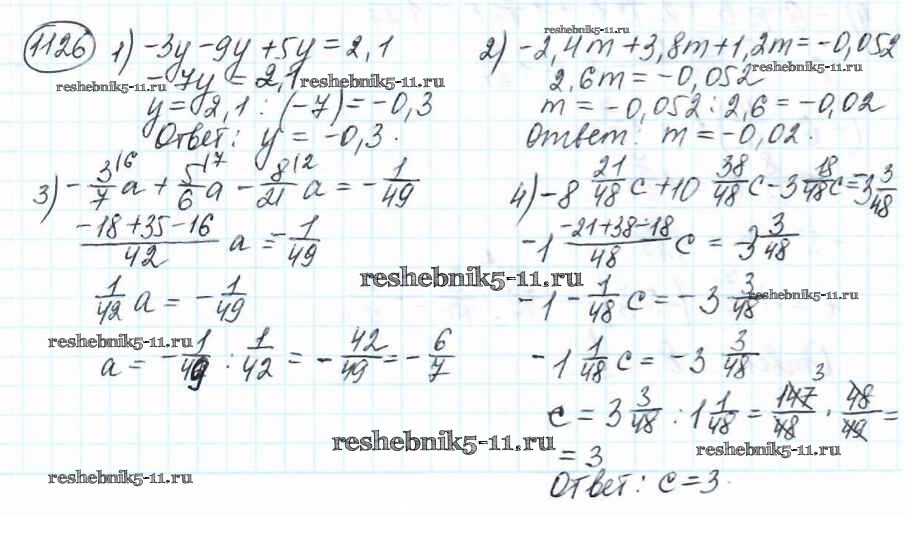 1126 1) -3y - 9y + 5y = 2,1
-7y = 2,1
y = 2,1 : (-7) = -0,3
Ответ: y = -0,3.
2) -2,4m + 3,8m + 1,2m = -0,052
2,6m = -0,052
m = -0,052 : 2,6 = -0,02
Ответ: m = -0,02.
3) -3/7 |6 a + 5/6 |7 a - 8/21 |2 a = -1/49
(-18 + 35 - 16)/42 a = -1/49
1/42 a = -1/49
a = -1/49 : 1/42 = -42/49 = -6/7
4) -8 21/48 c + 10 38/48 c - 3 18/48 c = -3 3/48
-1 (-21 + 38 - 18)/48 c = -3 3/48
-1 - 1/48 c = -3 3/48
-1 1/48 c = -3 3/48
c = 3 3/48 : 1 1/48 = 147/48 3 · 48/49 =
= 3
Ответ: c = 3.
reshebnik5-11.ru
reshebnik5-11.ru
reshebnik5-11.ru
reshebnik5-11.ru
reshebnik5-11.ru
reshebnik5-11.ru
reshebnik5-11.ru
reshebnik5-11.ru
reshebnik5-11.ru
reshebnik5-11.ru